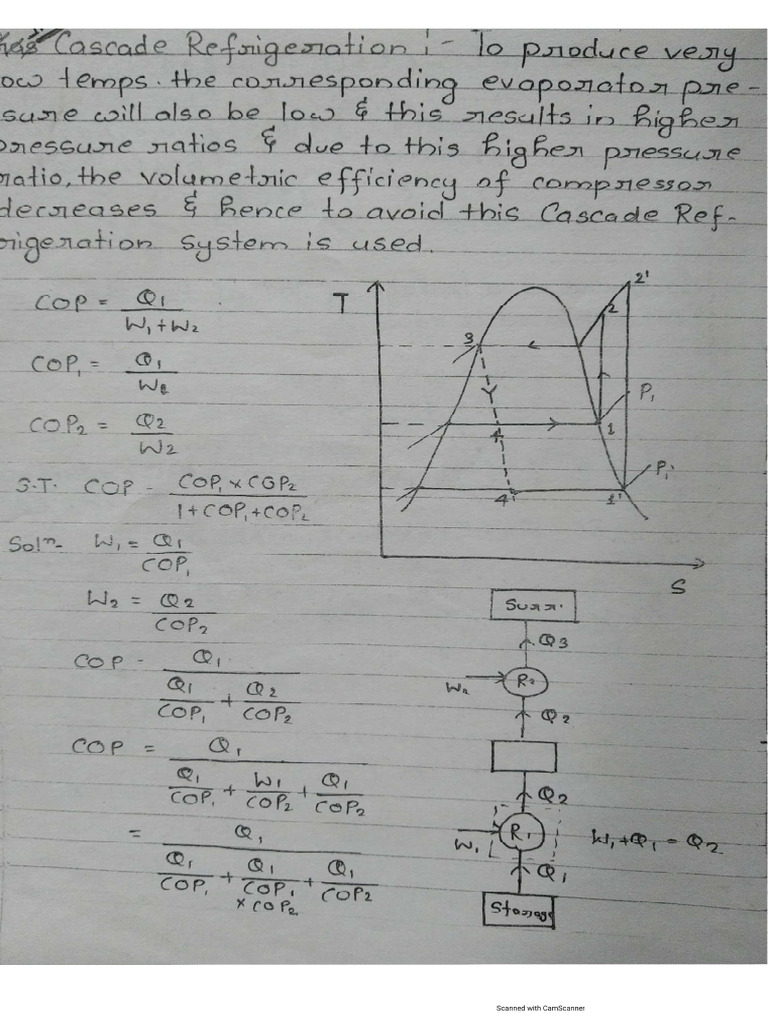 Cascade Refrigeration :- To produce very
low temps. the corresponding evaporator pre-
ssure will also be low & this results in higher
pressure ratios & due to this higher pressure
ratio, the volumetric efficiency of compressor
decreases & hence to avoid this Cascade Ref-
rigeration system is used.
COP = Q1 / W1+W2
COP1 = Q1 / W1
COP2 = Q2 / W2
S.T. COP - COP1 x COP2 / 1+COP1+COP2
Soln- W1 = Q1 / COP1
W2 = Q2 / COP2
COP - Q1 / Q1/COP1 + Q2/COP2
COP = Q1 / Q1/COP1 + W1/COP2 + Q1/COP2
= Q1 / Q1/COP1 + Q1/COP1 x COP2 + Q1/COP2
T
2'
2
3
P1
4
1
P1'
4'
1'
S
Surr.
Q3
W2
R2
Q2
Q2
W1
R1
W1+Q1 = Q2
Q1
Storage
Scanned with CamScanner